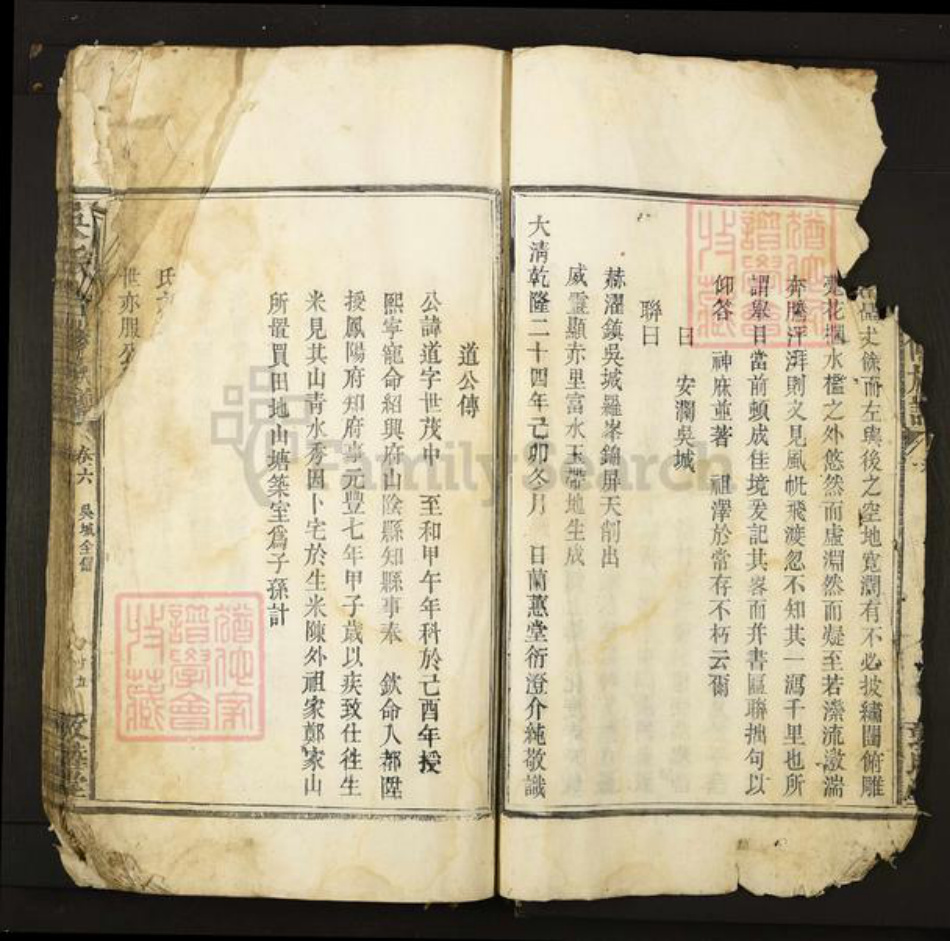 丈餘而左與後之空地寬濶有不必披繡闥俯雕
甍花欄水檻之外悠然而虛淵然而凝至若濚流激湍
奔騰汗湃則又見風帆飛渡忽不知其一瀉千里也所
謂舉目當前頓成佳境爰記其畧而并書區聯拙句以
仰答 神庥並著 祖澤於常存不朽云爾
曰 安瀾吳城
聯曰
赫濯鎮吳城羅峯錦屏天削出
威靈顯亦里富水玉帶地生成
大清乾隆二十四年己卯冬月 日蘭蕙堂衍澄介純敬識
道公傳
公諱道字世茂中 至和甲午年科於己酉年授
熙寧寵命紹興府山陰縣知縣事奉 欽命入都陞
授鳳陽府知府事元豐七年甲子歲以疾致仕徃生
米見其山青水秀因卜宅於生米陳外祖家鄭家山
所置買田地山塘築室爲子孫計
氏
世亦服公
卷六 吳城全
譜學會
收藏
譜學會
收藏
FamilySearch